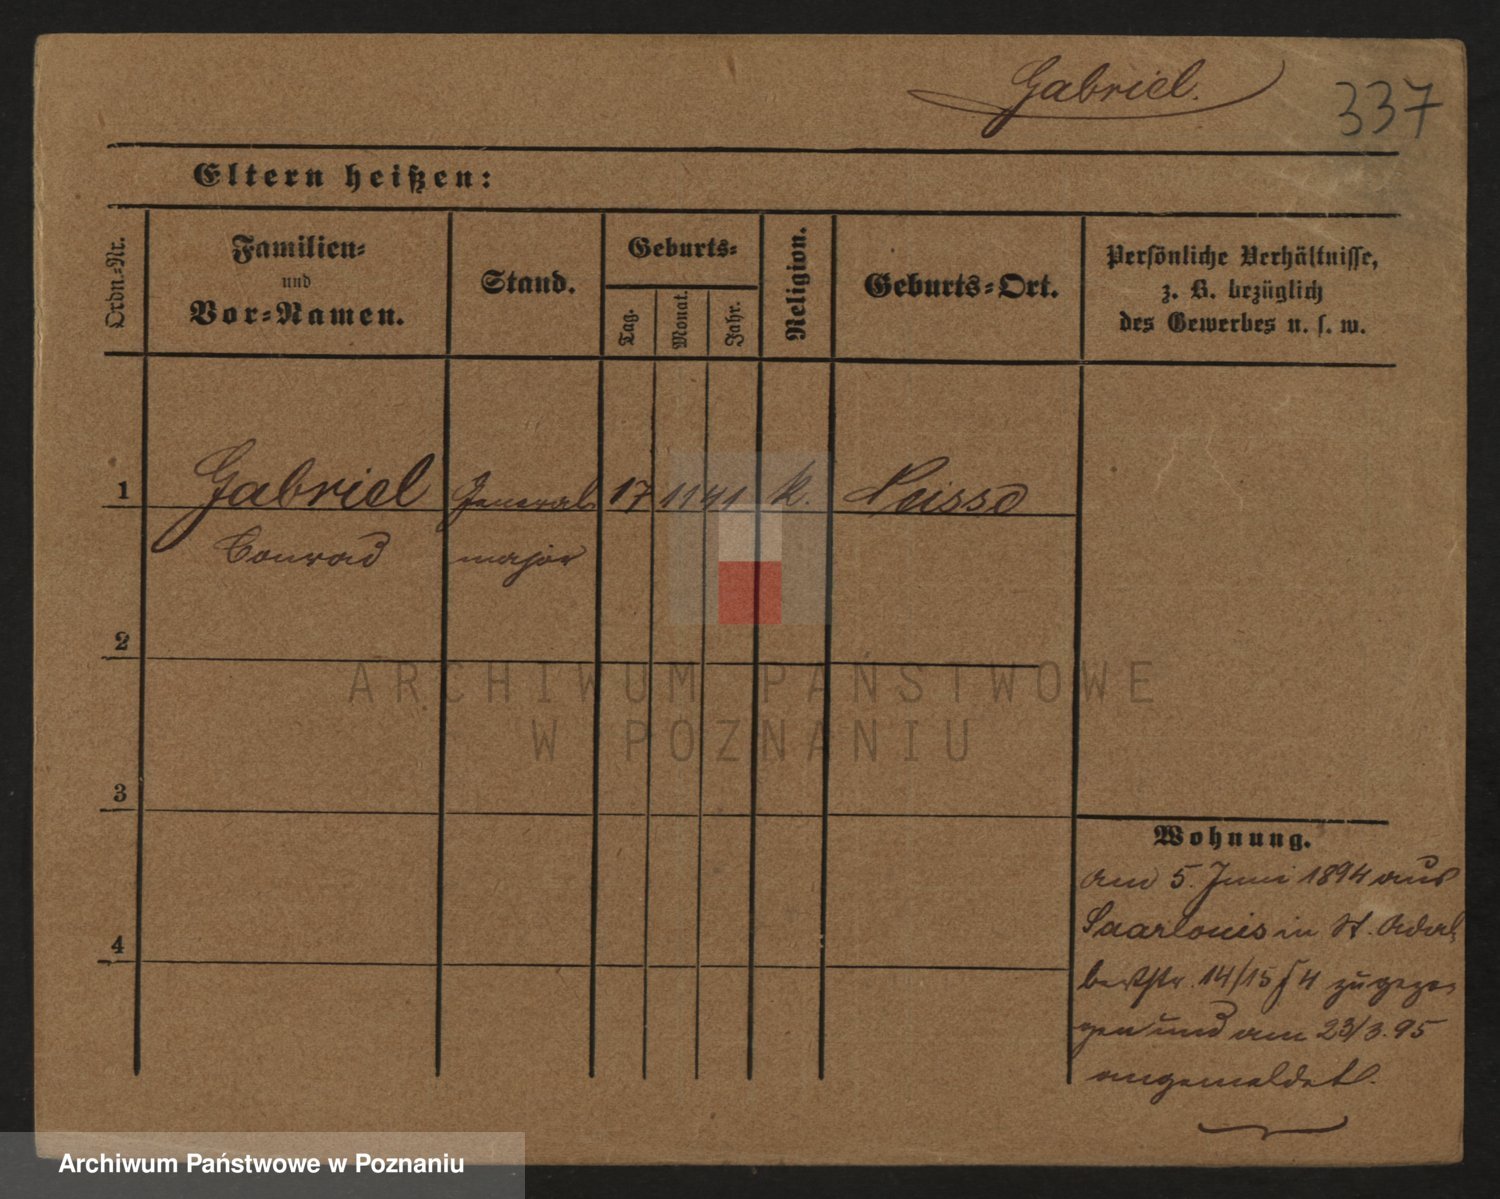 Gabriel.
337
Eltern heißen:
Ordn.=Nr.
Familien=
und
Vor=Namen.
Stand.
Geburts=
Tag.
Monat.
Jahr.
Religion.
Geburts=Ort.
Persönliche Verhältnisse,
z. B. bezüglich
des Gewerbes u. s. w.
1
Gabriel
General
17
11
41
k.
Neisse
Conrad
major
2
3
4
Wohnung.
am 5. Juni 1894 aus
Saarlouis in St. Adal
bertstr. 14/15 4 zugezo
gen und am 23/3.95
angemeldet.
ARCHIWUM PAŃSTWOWE
W POZNANIU
Archiwum Państwowe w Poznaniu